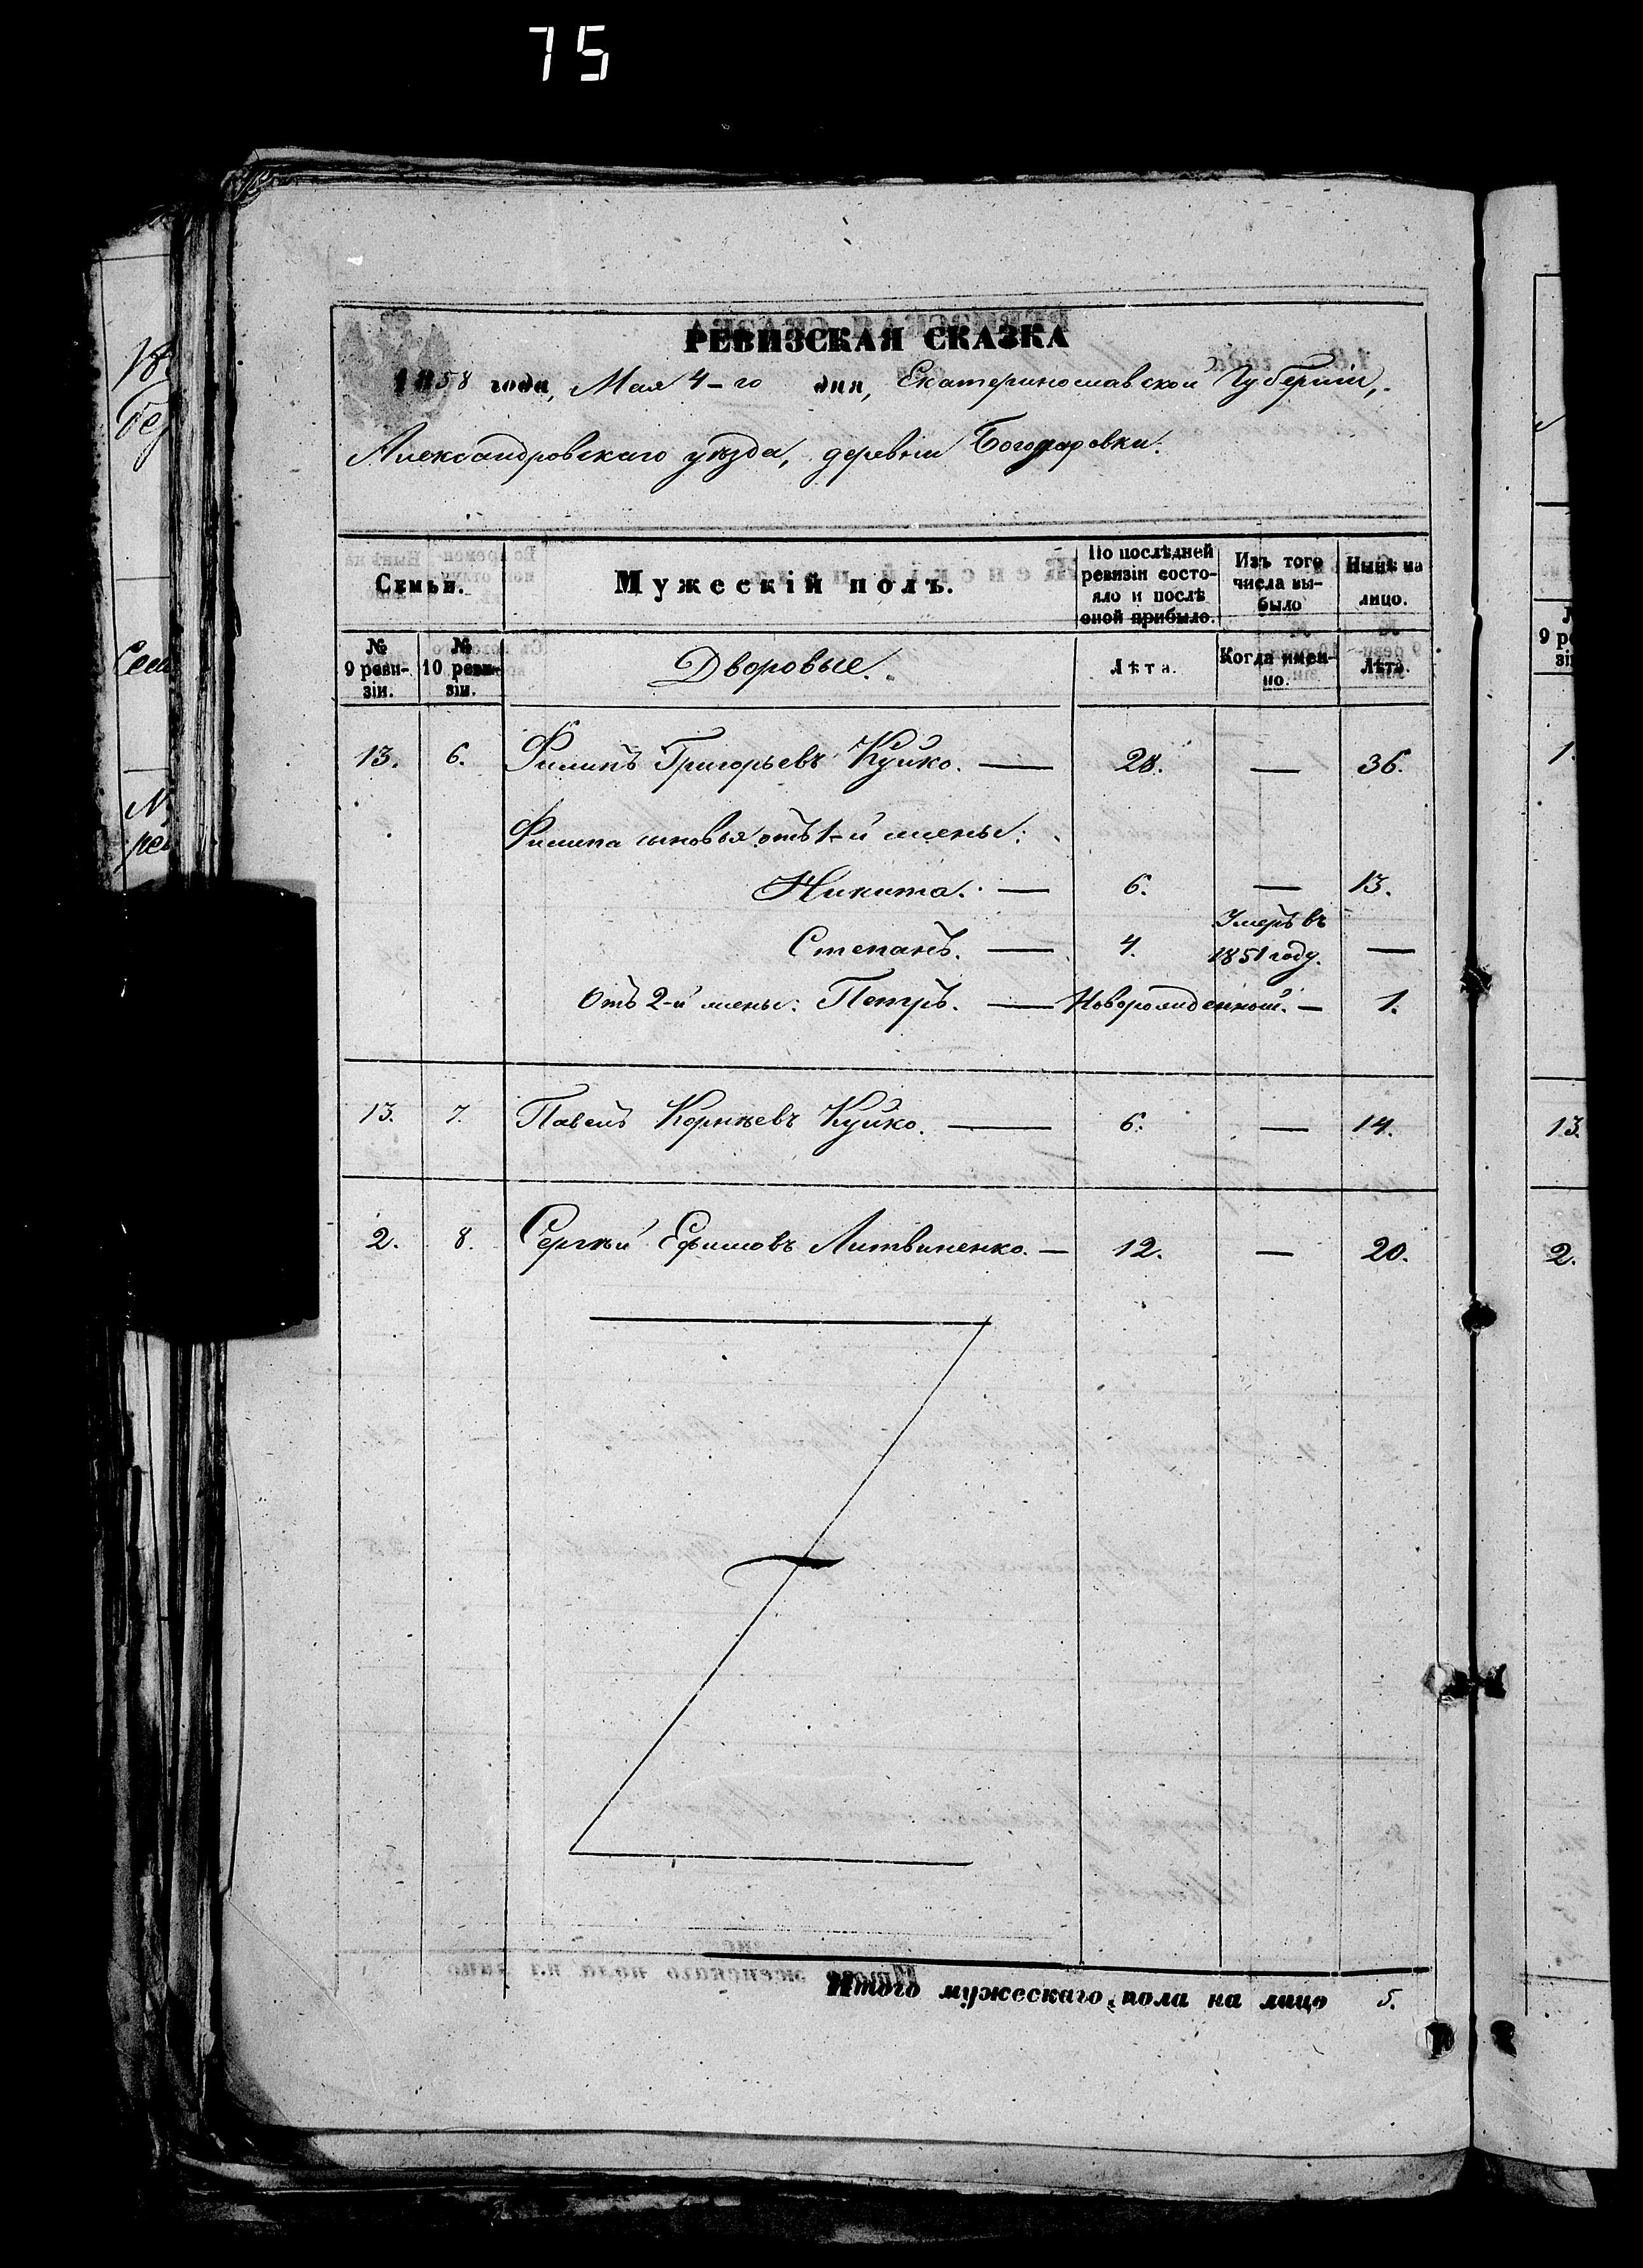 75
РЕВИЗСКАЯ СКАЗКА
1858 года, Мая 4-го дня, Екатеринославской Губерніи,
Александровскаго уѣзда, деревни Богодаровки.
Семьи. Мужескій полъ. По послѣдней ревизіи состояло и послѣ оной прибыло. Изъ того числа выбыло Нынѣ на лицо.
№ 9 ревизіи. № 10 ревизіи. Дворовые. Лѣта. Когда именно. Лѣта.
13. 6. Филипъ Григорьевъ Куйко. — 28. — 36.
Филипа сыновья отъ 1-й жены:
Никита. — 6. — 13.
Степанъ. — 4. Умеръ въ 1851 году. —
Отъ 2-й жены: Петръ. — Новорожденный. — 1.
13. 7. Павелъ Корнѣевъ Куйко. — 6. — 14.
2. 8. Сергѣй Ефимовъ Литвиненко. — 12. — 20.
Итого мужескаго пола на лицо 5.